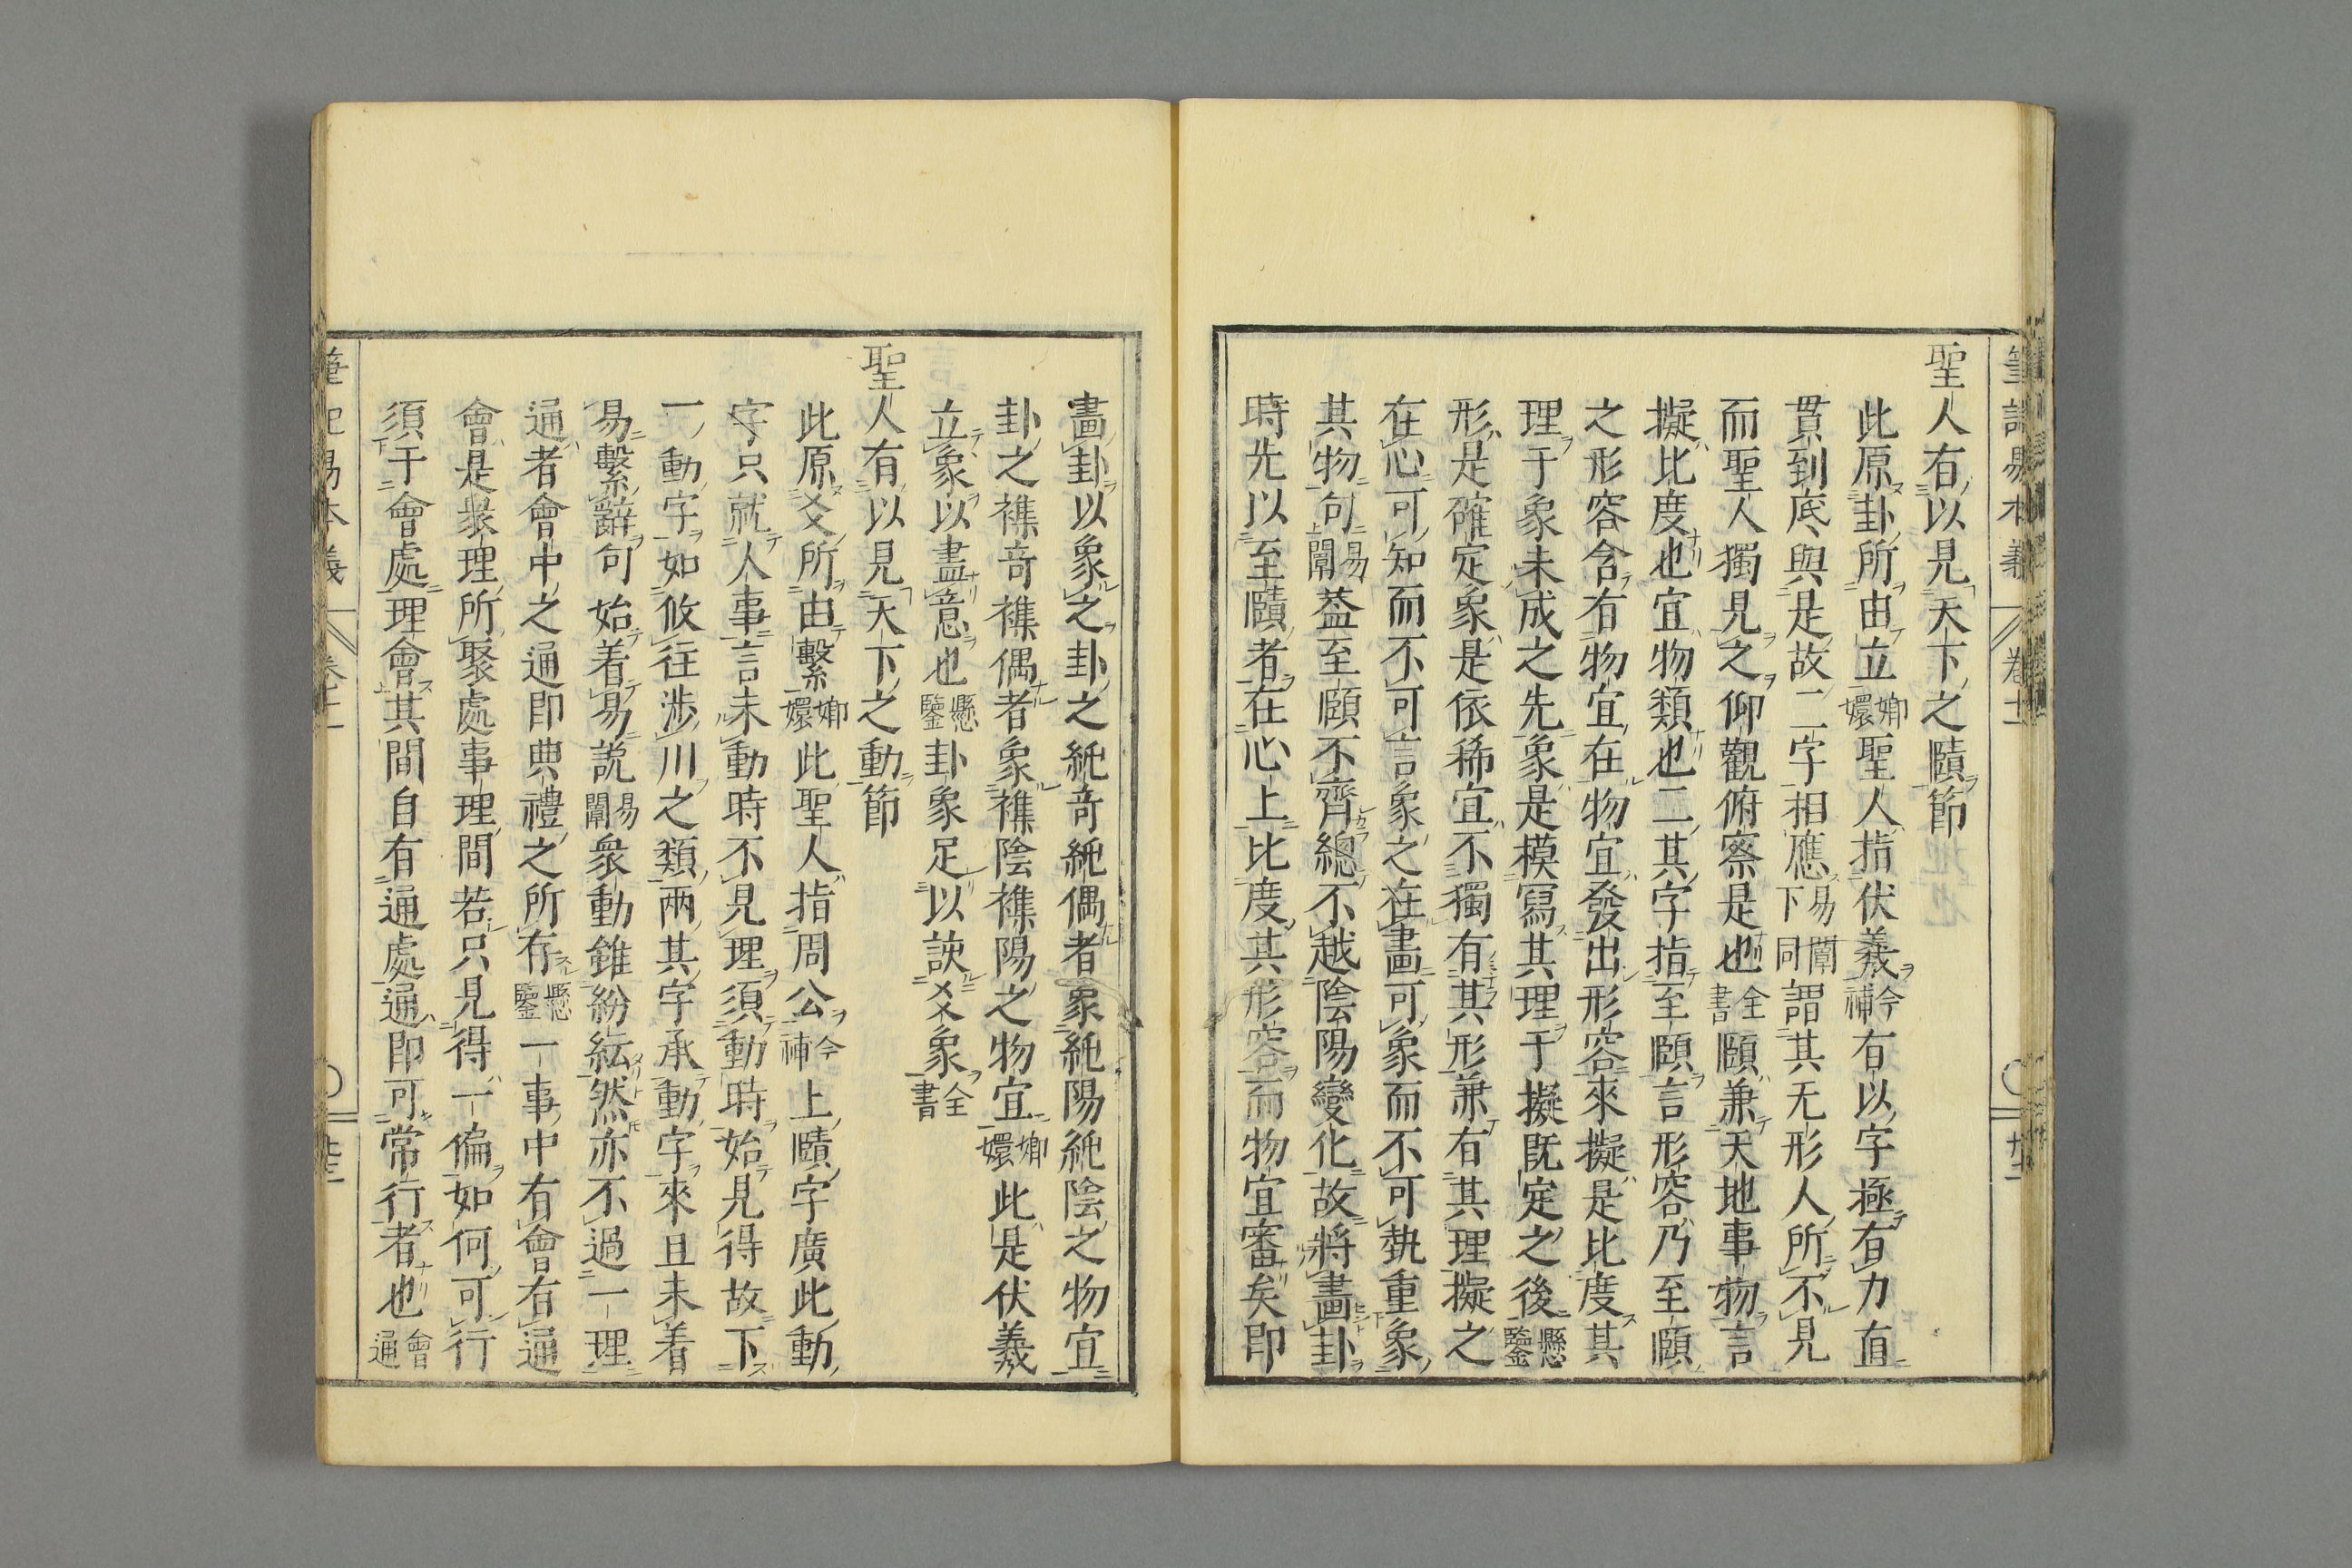 聖人有以見天下之賾節
此原卦所由立嫏嬛聖人指伏羲今補有以字極有力直
貫到底與是故二字相應易闡下同謂其无形人所不見
而聖人獨見之仰觀俯察是也全書賾兼天地事物言
擬比度也宜物類也二其字指至賾言形容乃至賾
之形容含有物宜在物宜發出形容來擬是比度其
理于象未成之先象是模寫其理于擬既定之後懸鑒
形是確定象是依稀宜不獨有其形兼有其理擬之
在心可知而不可言象之在畫可象而不可執重象
其物句易闡葢至賾不齊總不越陰陽變化故將畫卦
時先以至賾者在心上比度其形容而物宜審矣即
畫卦以象之卦之純奇純偶者象純陽純陰之物宜
卦之襍奇襍偶者象襍陰襍陽之物宜嫏嬛此是伏羲
立象以盡意也懸鑒卦象足以該爻象全書
聖人有以見天下之動節
此原爻所由繫嫏嬛此聖人指周公今補上賾字廣此動
字只就人事言未動時不見理須動時始見得故下
一動字如攸往涉川之類兩其字承動字來且未着
易繫辭句始着易說易闡衆動雖紛紜然亦不過一理
通者會中之通即典禮之所存懸鑒一事中有會有通
會是衆理所聚處事理間若只見得一偏如何可行
須于會處理會其間自有通處通即可常行者也會通